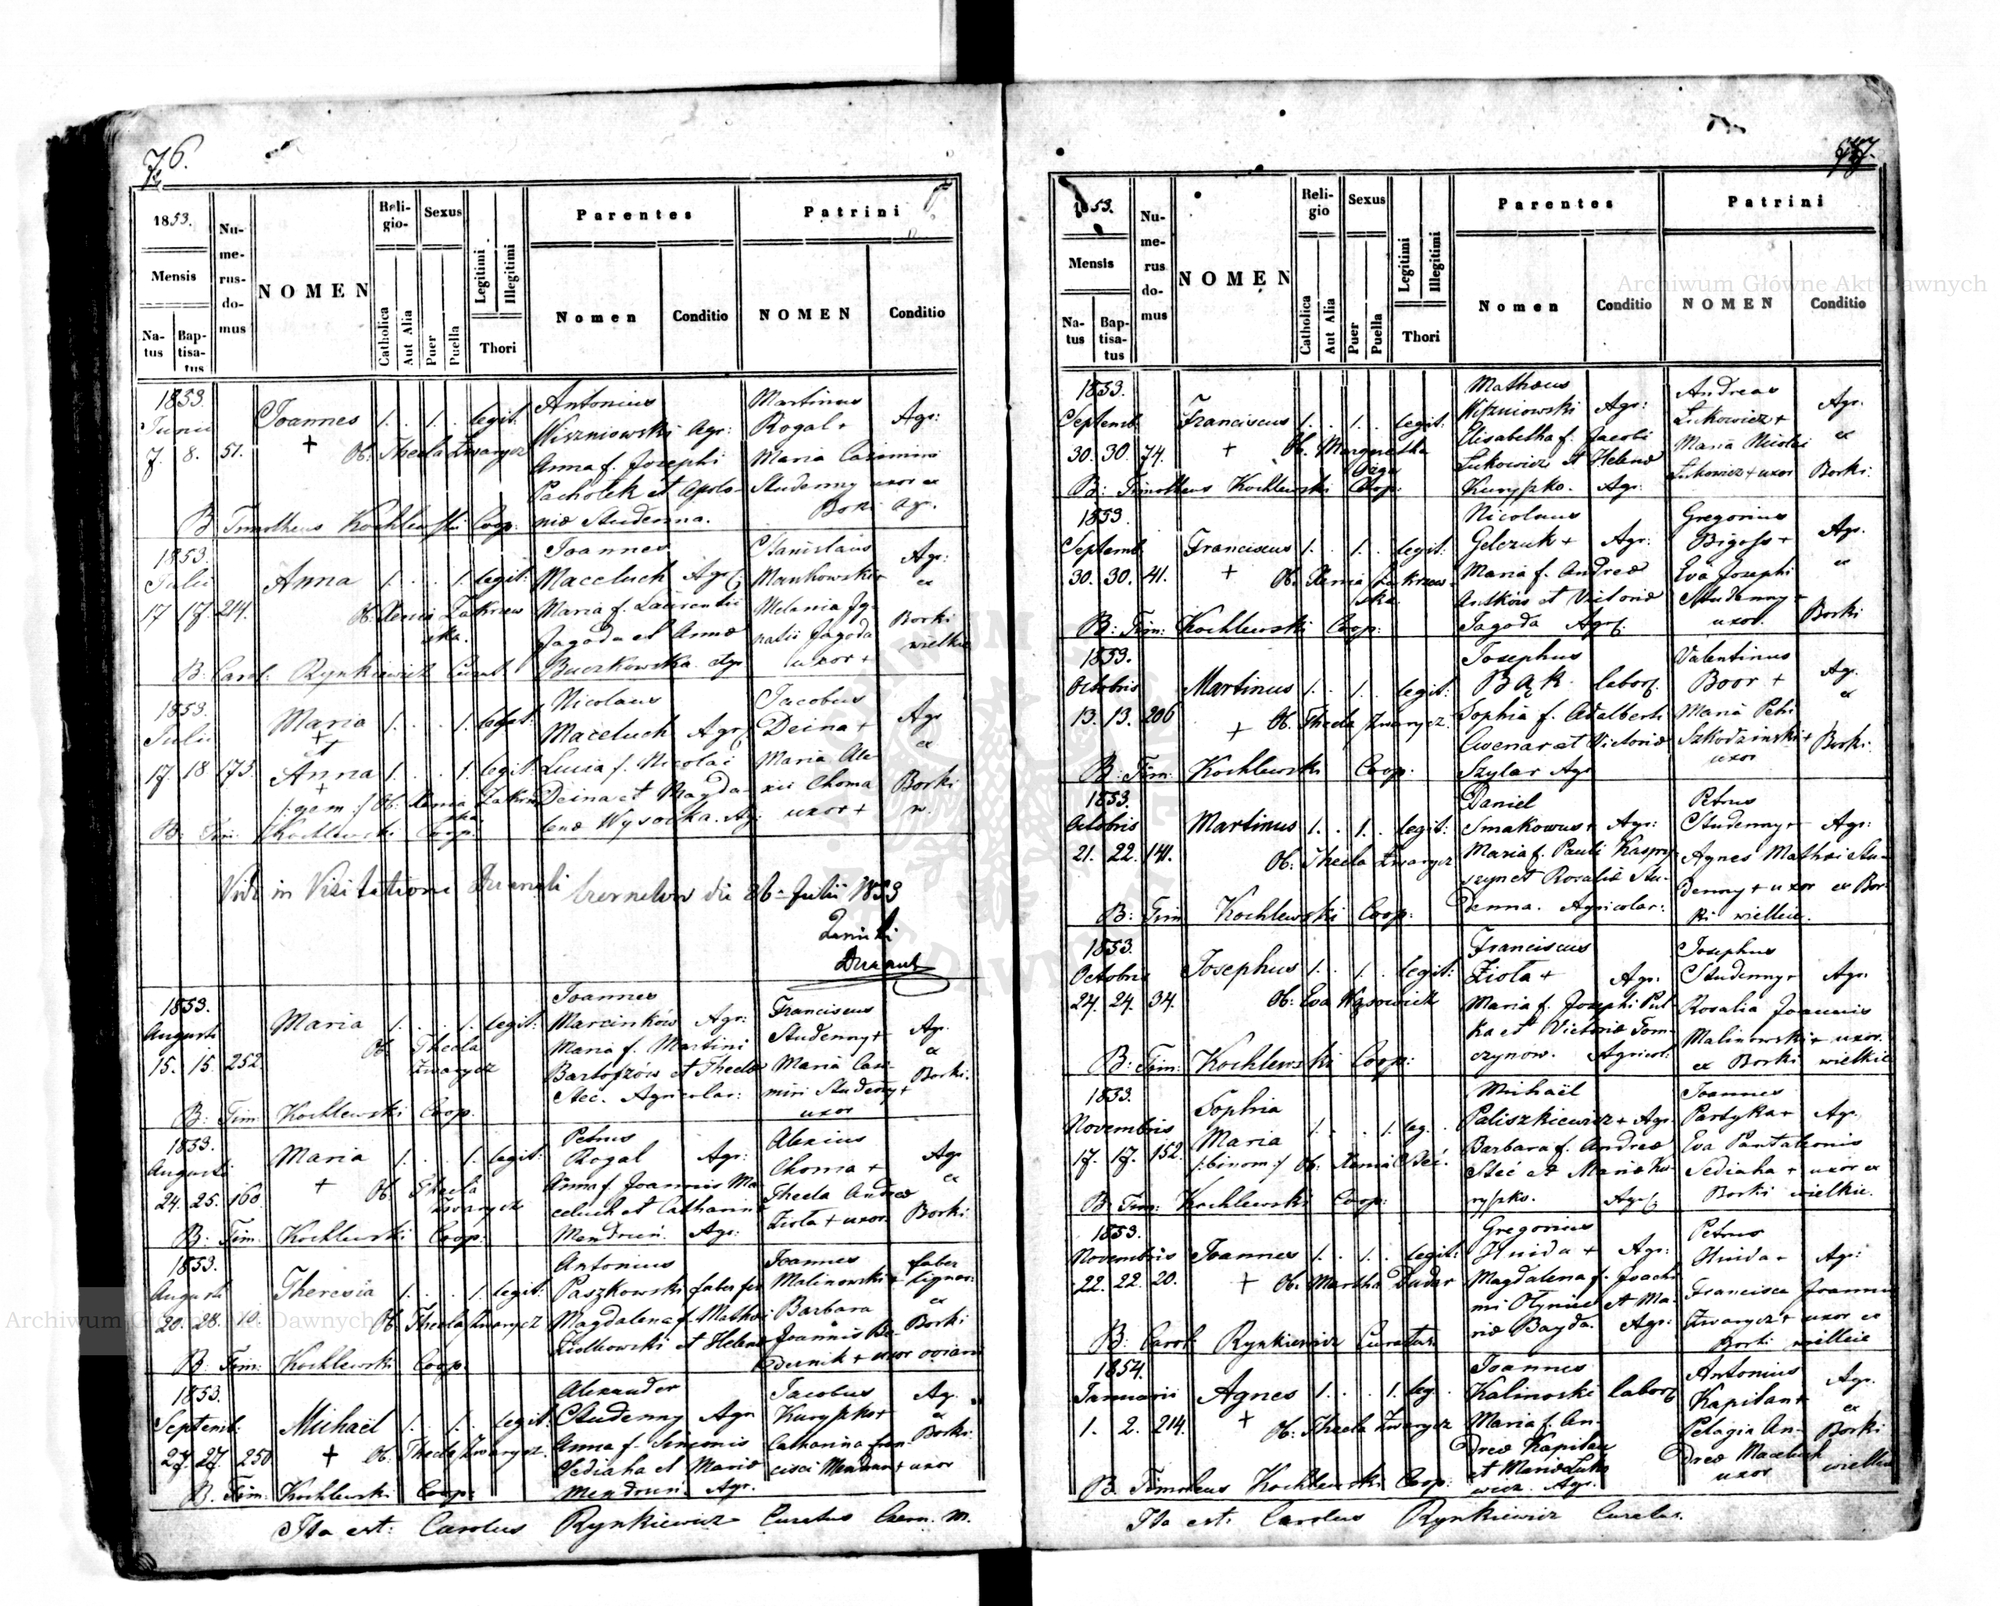 76.
1853.
Mensis
Natus
Baptisatus
Numerus-domus
NOMEN
Religio-
Catholica
Aut Alia
Sexus
Puer
Puella
Legitimi
Illegitimi
Thori
Parentes
Nomen
Conditio
Patrini
NOMEN
Conditio
1853.
Junii
7. 8. 51. Joannes 1. . 1. . legit.
+ Ob: Thecla Zwarycz
Antonius
Wiszniowski Agr:
Anna f. Josephi
Pachołek et Apolo-
niæ Studenna.
Martinus
Rogal + Agr:
Maria Casimiri
Studenny uxor ex
Borki Agr.
B. Timotheus Kochlewski Coop.
1853.
Julii
17 18. 214. Anna 1. . . 1. legit:
Ob: Xenia Zakrzewska.
Joannes
Maceluch Agr.
Maria f. Laurentii
Jagoda et Annæ
Buczkowska. Agr
Stanislaus
Mankowski + Agr:
ex
Melania Ig-
natii Jagoda
uxor +
Borki
wielkie
B: Carol: Rynkiewicz Curat.
1853.
Julii
17. 18 173. Maria 1. . . 1. legit.
+
et
Anna 1. . . 1. legit
+
/:gem:/ Ob: Xenia Zakrzewska
Nicolaus
Maceluch Agr.
Lucia f. Nicolai
Deina et Magda-
lenæ Wysocka. Ag.
Jacobus
Deina + Agr
ex
Maria Ale-
xii Choma
uxor +
Borki
w.
B: Tim: Kochlewski Coop.
Vidi in Visitatione Decanali
die 26 Julii 1853
1853.
Augusti
15. 15. 252. Maria 1. . . 1. legit:
Ob: Thecla
Zwarycz
Joannes
Marcinków Agr:
Maria f. Martini
Bartoszów et Theclæ
Steć. Agricolar:
Franciscus
Studenny + Agr.
ex
Maria Casi-
miri Studenny +
uxor
Borki.
B: Tim: Kochlewski Coop.
1853.
Augusti
24. 25. 160. Maria 1. . . 1. legit:
+ Ob: Thecla
Zwarycz
Petrus
Rogal Agr:
Anna f. Joannis Ma-
celuch et Catharinæ
Mendruń. Agr:
Alexius
Choma + Agr
ex
Thecla Andreæ
Zioła + uxor. Borki
B: Tim: Kochlewski Coop:
1853.
Augusti
20. 28. 10. Theresia 1. . . 1. legit:
Ob: Thecla Zwarycz
Antonius
Paszkowski faber fer
Magdalena f. Mathæi
Ziolkowski et Helenæ
Joannes faber
Malinowski + lignar.
ex
Barbara Borki
Joannis Be-
dernik + uxor
B: Tim: Kochlewski Coop.
1853.
Septemb:
27. 27. 250 Michaël 1. . 1. . legit:
+ Ob: Thecla Zwarycz
Alexander
Studenny Agr
Anna f. Simeonis
Sediaha et Mariæ
Mendruń. Agr.
Jacobus Ag.
Kuryszko + ex
Catharina Fran-
cisci + uxor
Borki
B. Tim: Kochlewski Coop:
Ita est: Carolus Rynkiewicz Curatus Czern. m.
77.
1853.
Mensis
Natus
Baptisatus
Numerus domus
NOMEN
Religio
Catholica
Aut Alia
Sexus
Puer
Puella
Legitimi
Illegitimi
Thori
Parentes
Nomen
Conditio
Patrini
NOMEN
Conditio
1853.
Septemb.
30. 30. 74. Franciscus 1. . 1. . legit:
+ Ob. Margaretha
Mathæus
Wiszniowski Agr:
Elisabetha f. Jacobi
Lukowicz et Helenæ
Kuryszko. Agr.
Andreas
Lukowicz + Agr.
ex
Maria Nicolai
Lukowicz + uxor Borki.
B: Timotheus Kochlewski Coop:
1853.
Septemb.
30. 30. 41. Franciscus 1. . 1. . legit:
+ Ob. Xenia Zakrzewska.
Nicolaus
Gelczuk + Agr:
Maria f. Andreæ
Antków et Victoriæ
Jagoda Agr.
Gregorius
Bigoss + Agr.
ex
Eva Josephi
Studenny +
uxor. Borki
B: Tim: Kochlewski Coop:
1853.
Octobris
13. 13. 206 Martinus 1. . 1. . legit:
+ Ob. Thecla Zwarycz.
Josephus
Bąk. labor.
Sophia f. Adalberti
Cwenar et Victoriæ
Szylar Agr
Valentinus
Boor + Ag.
ex
Maria Petri
Szkodzinski +
uxor Borki.
B: Tim: Kochlewski Coop:
1853.
Octobris
21. 22. 141. Martinus 1. . 1. . legit:
Ob: Thecla Zwarycz
Daniel
Smakowus + Agr:
Maria f. Pauli Kaspry-
szyn et Rosaliæ Stu-
denna. Agricolar:
Petrus
Studenny + Agr:
Agnes Mathæi Stu-
denny + uxor ex Bor-
ki wielkie.
B: Tim Kochlewski Coop:
1853.
Octobris
24. 24. 34. Josephus 1. . 1. . legit:
Ob: Eva Wąsowicz
Franciscus
Zioła + Agr.
Maria f. Josephi Put-
ka et Victoriæ Tom-
czynow. Agricol:
Josephus
Studenny + Agr:
Rosalia Joannis
Malinowski + uxor.
ex Borki wielkie
B: Tim: Kochlewski Coop:
1853.
Novembris
17. 17. 152. Sophia
Maria 1. . . 1. leg.
/:binom:/ Ob: Xenia Steć.
Michaël
Paliszkiewicz + Agr
Barbara f. Andreæ
Steć et Mariæ Ku-
ryszko. Agr.
Joannes
Partyka + Agr
Eva Pantaleonis
Sediaha + uxor ex
Borki wielkie.
B: Tim: Kochlewski Coop:
1853.
Novembris
22. 22. 20. Joannes 1. . 1. . legit:
+ Ob. Martha Dudar
Gregorius
Hnida + Agr:
Magdalena f. Joachi-
mi et Ma-
riæ Bayda. Agr:
Petrus
Hnida + Agr:
Francisca Joannis
Zwarycz + uxor ex
Borki wielkie
B: Carol: Rynkiewicz Curatus.
1854.
Januarii
1. 2. 214. Agnes 1. . . 1. leg.
+ Ob: Thecla Zwarycz
Joannes
Kalinoski labor.
Maria f. An-
dreæ Kapitan
et Mariæ Luko-
wicz. Agr.
Antonius
Kapitan + Agr.
ex
Pelagia An- Borki
dreæ Maceluch
uxor wielkie
B. Timotheus Kochlewski Coop:
Ita est: Carolus Rynkiewicz Curatus.
Archiwum Główne Akt Dawnych
Archiwum Główne Akt Dawnych